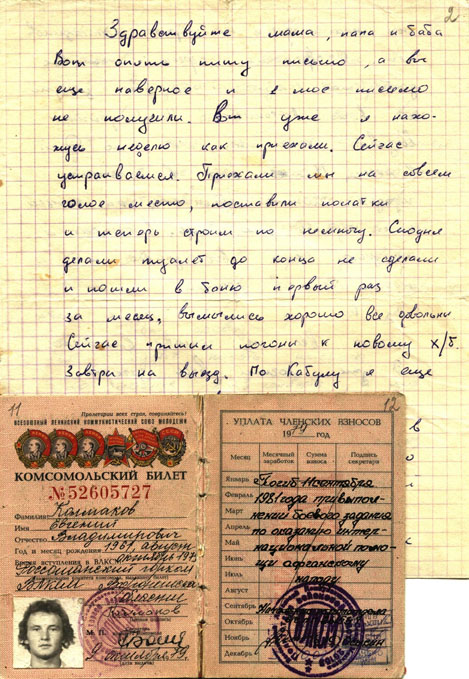 2
Здравствуйте мама, папа и баба
Вот опять пишу письмо, а вы
еще наверное и 1 мое письмо
не получили. Вот уже я нахо-
жусь неделю как приехали. Сейчас
устраиваемся. Приехали мы на совсем
голое место, поставили палатки
и теперь строим по немногу. Сиодня
делали туалет до конца не сделали
и пошли в баню первый раз
за месяц, вымылись хорошо все довольны
Сейчас пришил погоны к новому х/б.
Завтра на выезд. По Кабулу я еще
11
Пролетарии всех стран, соединяйтесь!
ВСЕСОЮЗНЫЙ ЛЕНИНСКИЙ КОММУНИСТИЧЕСКИЙ СОЮЗ МОЛОДЕЖИ
КОМСОМОЛЬСКИЙ БИЛЕТ
№52605727
Фамилия Колмаков
Имя Евгений
Отчество Владимирович
Год и месяц рождения 1961, август
Время вступления в ВЛКСМ
горком
ВЛКСМ
М. П.
12
УПЛАТА ЧЛЕНСКИХ ВЗНОСОВ
19 год
Месяц Месячный заработок Сумма взноса Подпись секретаря
Январь
Февраль
Март
Апрель
Май
Июнь
Июль
Август
Сентябрь
Октябрь
Ноябрь
Декабрь
Погиб сентября
1981 года при выпол-
нении боевого задания
по оказанию интер-
национальной помо-
щи афганскому
народу